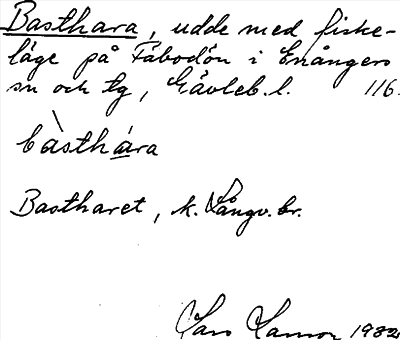 Basthara, udde med fiske-
läge på Fäbodön i Enångers
sn och tg, Gävleb.l. 116.
bàsthára
Bastharet, k. Långv. br.
Lars 1982